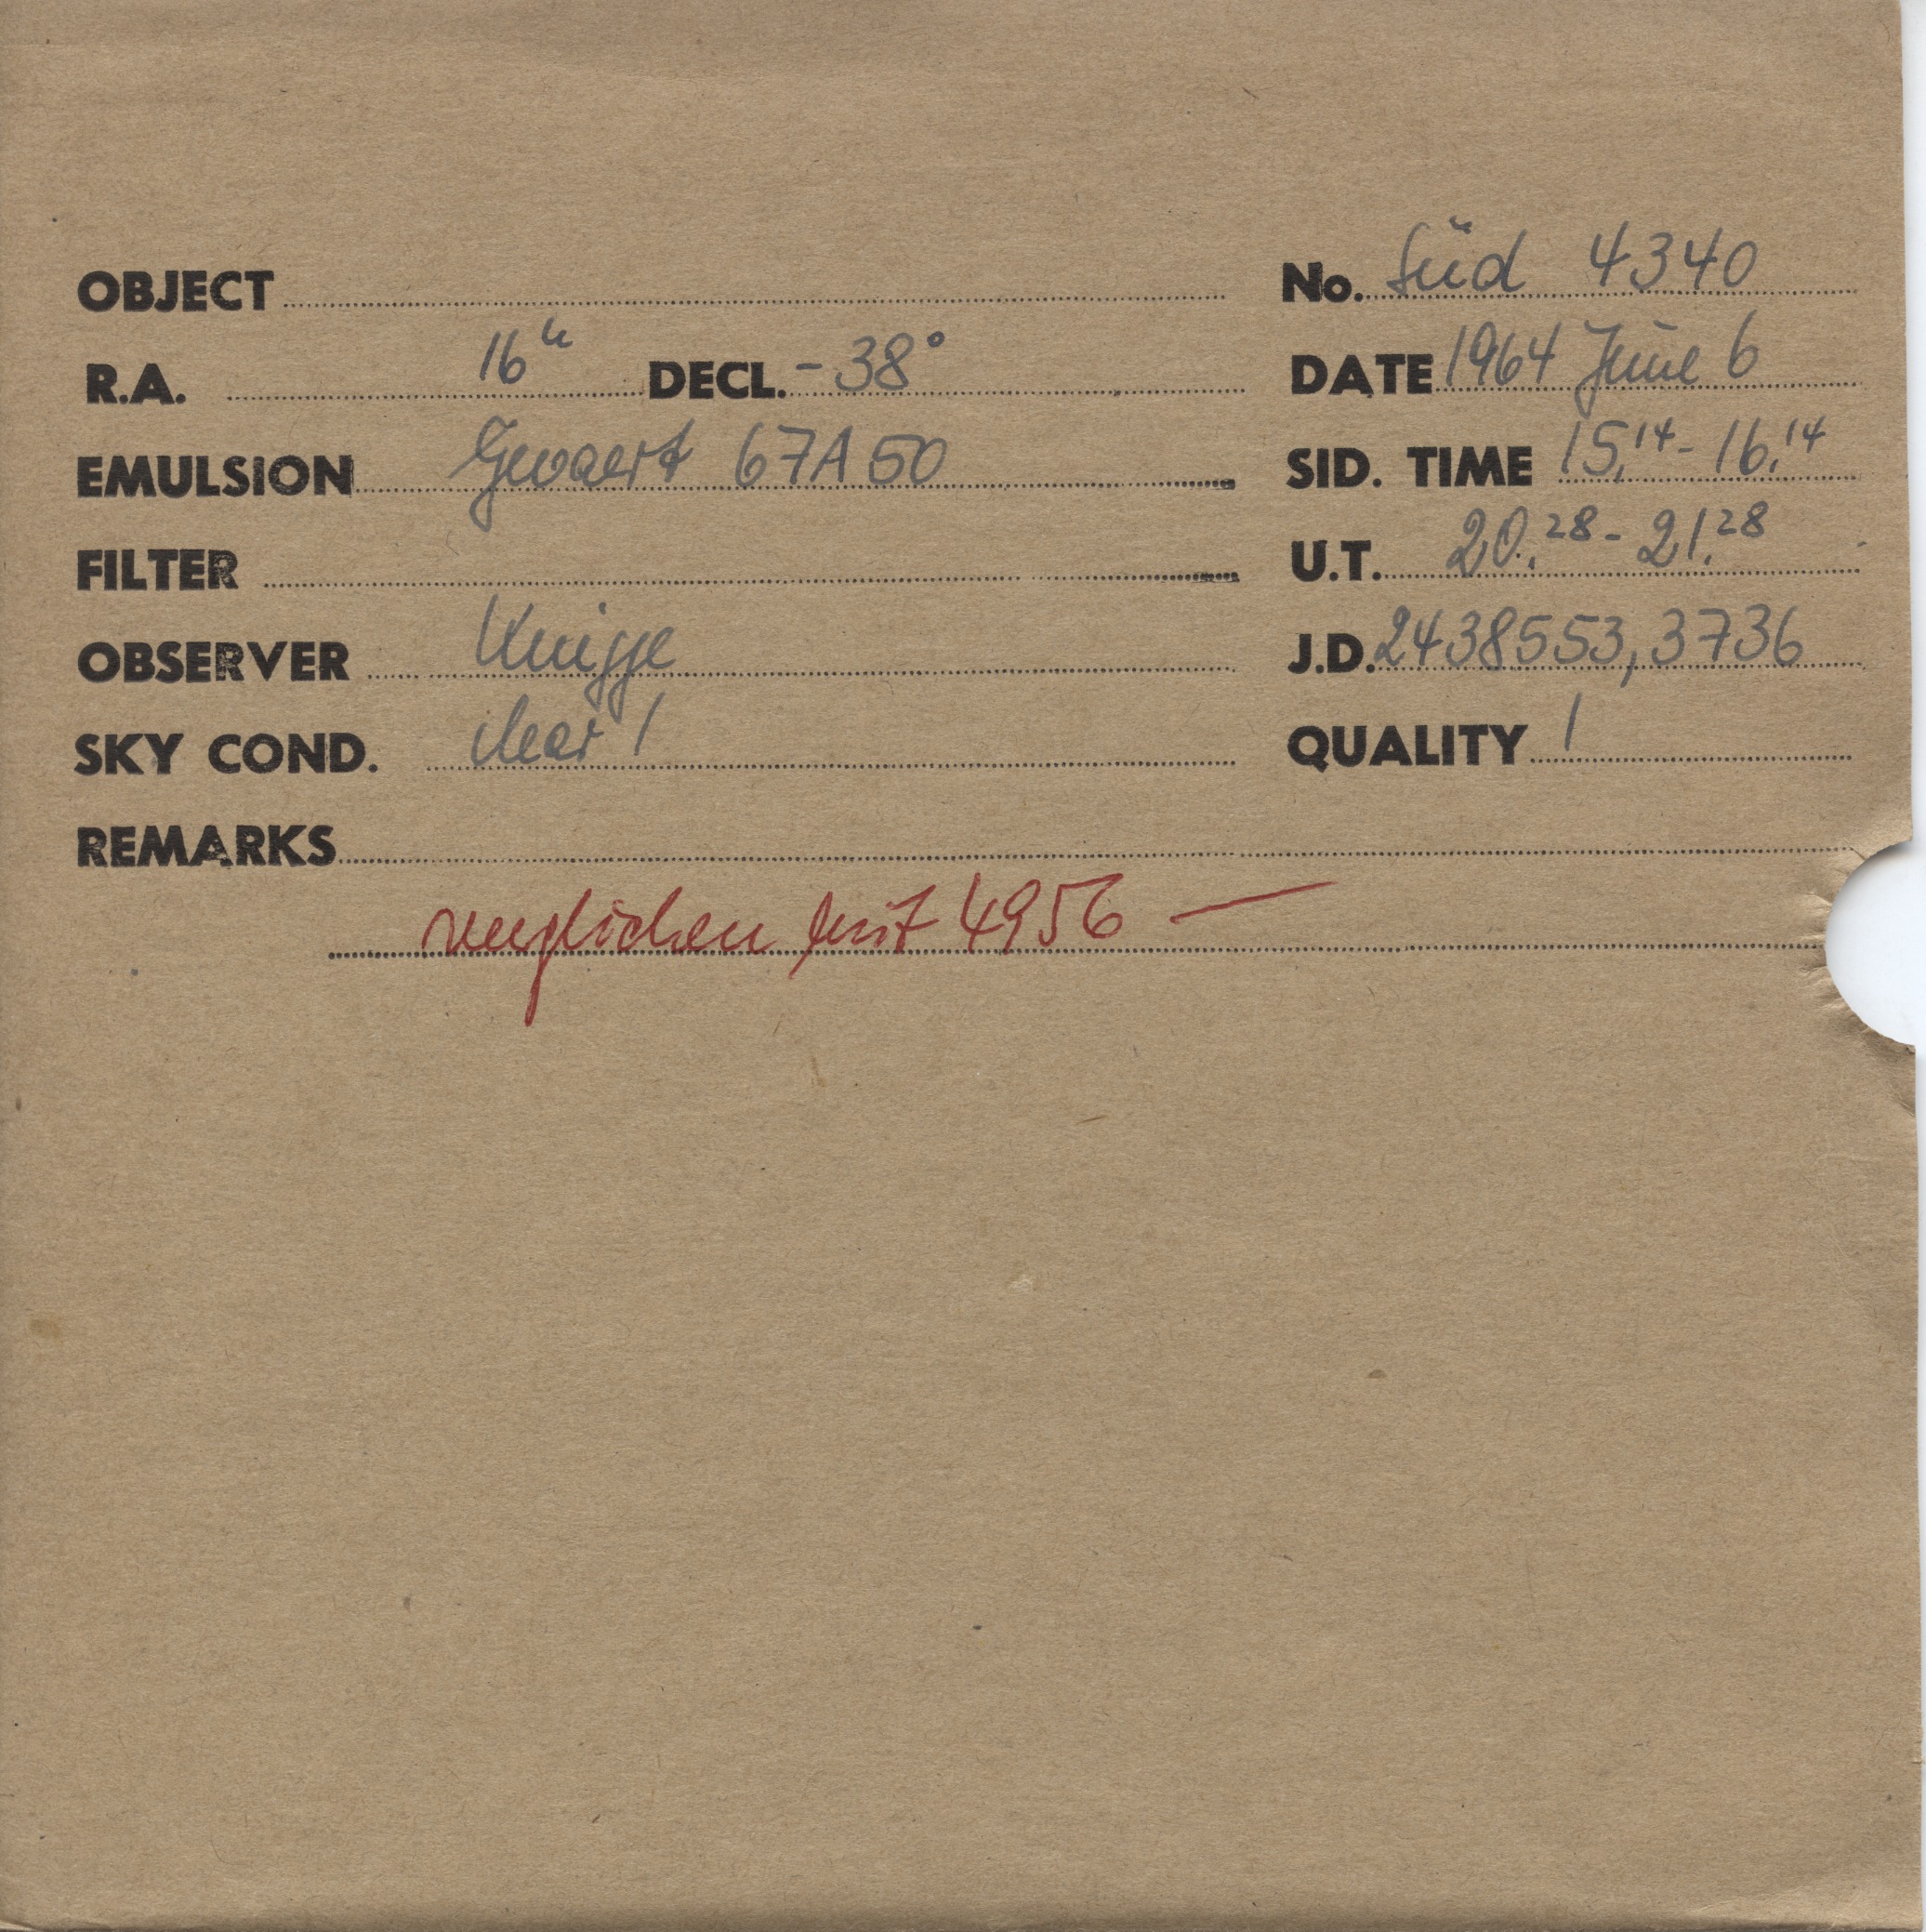 OBJECT No. Süd 4340
R.A. 16h DECL. -38° DATE 1964 June 6
EMULSION Gevaert 67A50 SID. TIME 15,14 - 16,14
FILTER U.T. 20,28 - 21,28
OBSERVER Knigge J.D. 2438553,3736
SKY COND. clear 1 QUALITY 1
REMARKS
verglichen mit 4956 —